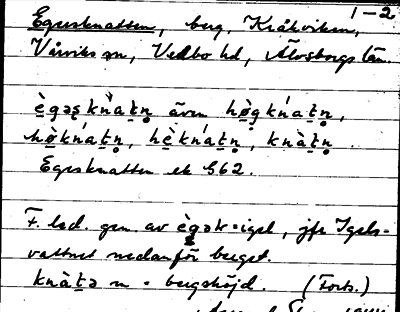 1-2
Egersknatten, berg, Kråkviken,
Vårviks sn, Vedbo hd, Älvsborgs län.
ègəʂknàtn̥ även hø̀gknatn̥,
hø̀knatn̥, hèknatn̥, knàtn̥.
Egersknatten ek 662.
F. led. gen av ègər = igel, jfr Igels-
vattnet nedanför berget.
knàtə m = bergshöjd. (Forts.)